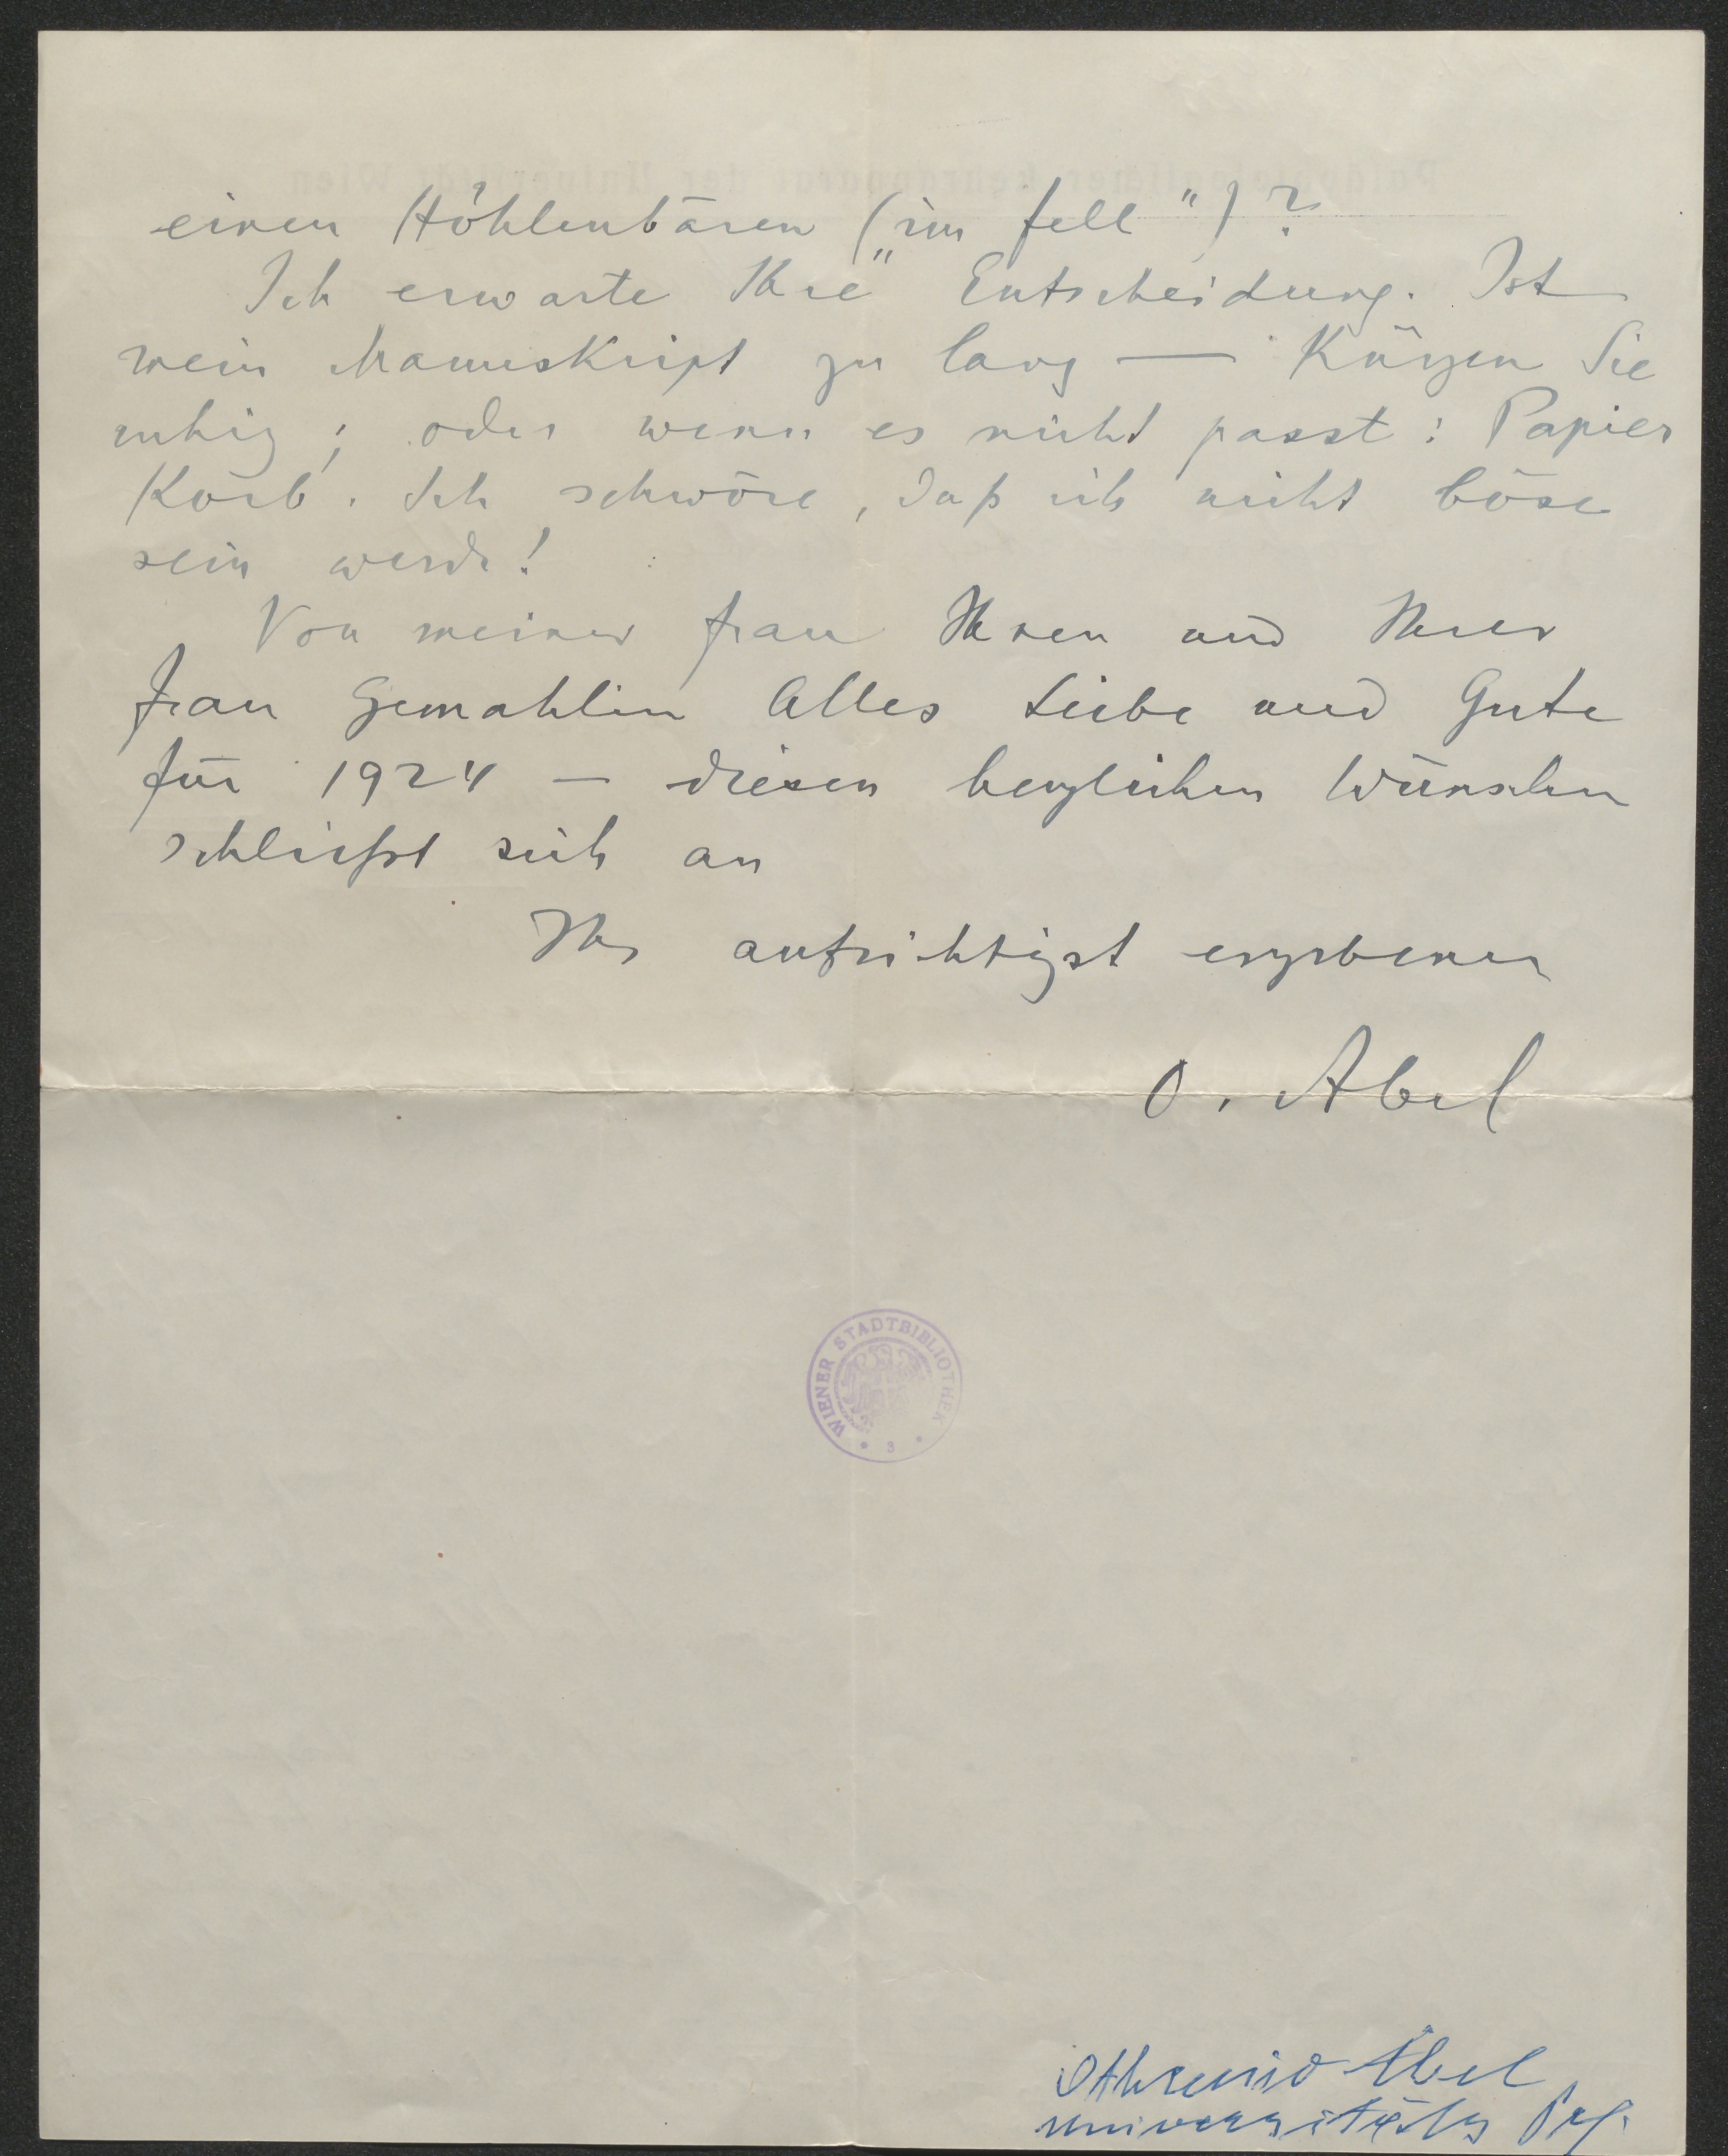 einen Höhlenbären („im Fell“)?
Ich erwarte Ihre Entscheidung. Ist
mein Manuskript zu lang — Kürzen Sie
ruhig; oder wenn es nicht passt: Papier
Korb. Ich schwöre, daß ich nicht böse
sein werde!
Von meiner Frau Ihnen und Ihrer
Frau Gemahlin Alles Liebe und Gute
für 1924 — diesen herzlichen Wünschen
schließt sich an
Ihr aufrichtigst ergebener
O. Abel
WIENER STADTBIBLIOTHEK
3
Othenio Abel
Universitäts Prof.